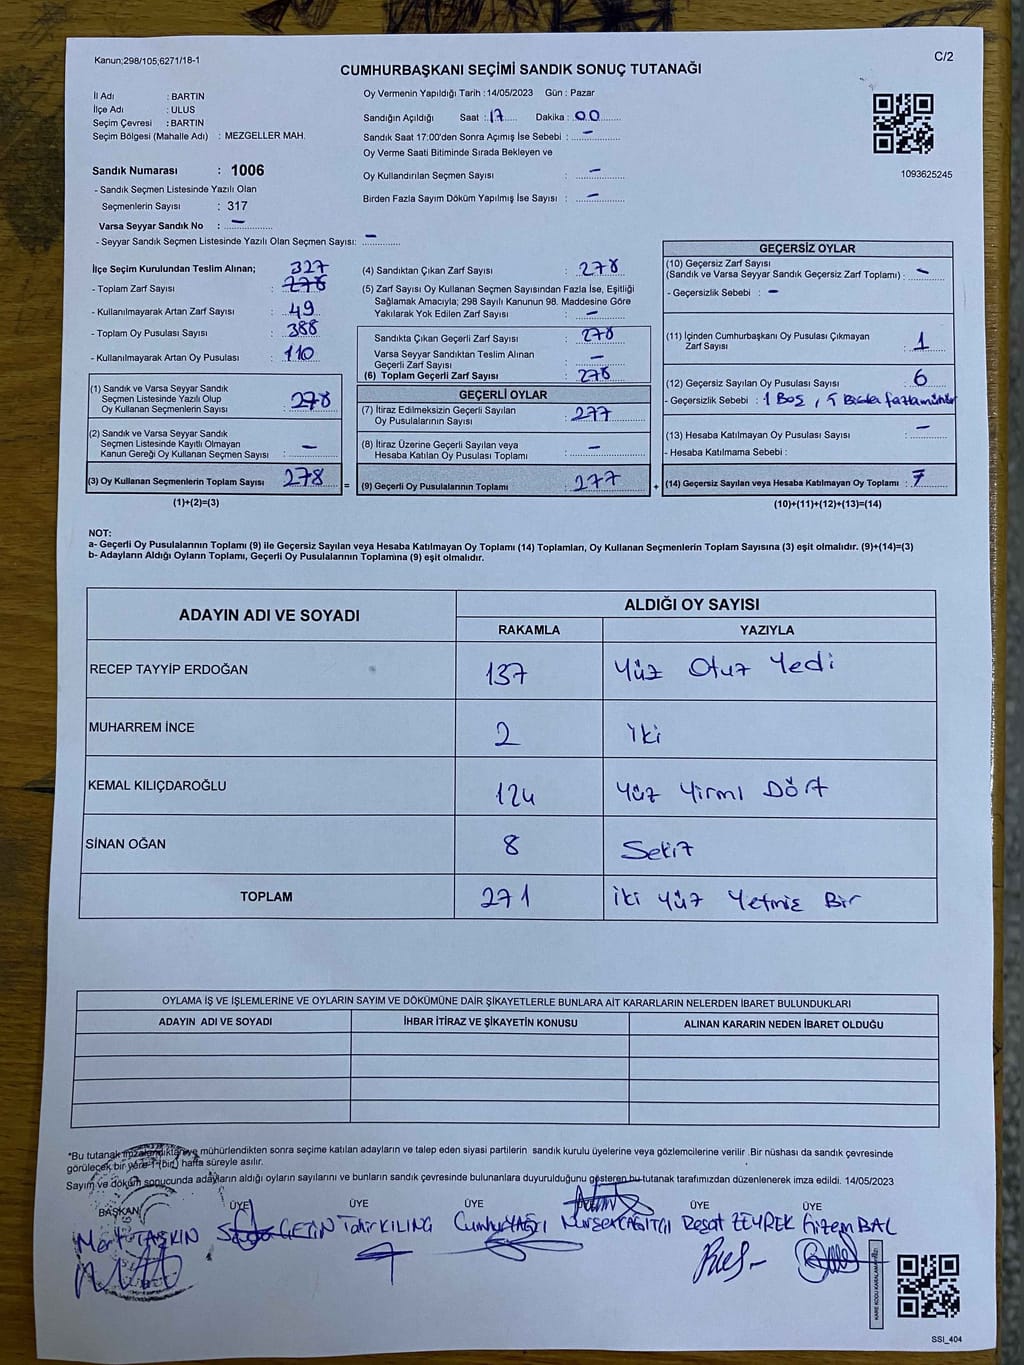 Kanun;298/105,6271/18-1
C/2
CUMHURBAŞKANI SEÇİMİ SANDIK SONUÇ TUTANAĞI
İl Adı : BARTIN
İlçe Adı : ULUS
Seçim Çevresi : BARTIN
Seçim Bölgesi (Mahalle Adı) : MEZGELLER MAH.
Sandık Numarası : 1006
- Sandık Seçmen Listesinde Yazılı Olan
Seçmenlerin Sayısı : 317
Varsa Seyyar Sandık No : –
- Seyyar Sandık Seçmen Listesinde Yazılı Olan Seçmen Sayısı: –
Oy Vermenin Yapıldığı Tarih :14/05/2023 Gün : Pazar
Sandığın Açıldığı Saat : 17 Dakika : 00
Sandık Saat 17:00'den Sonra Açımış İse Sebebi : –
Oy Verme Saati Bitiminde Sırada Bekleyen ve
Oy Kullandırılan Seçmen Sayısı : –
Birden Fazla Sayım Döküm Yapılmış İse Sayısı : –
1093625245
İlçe Seçim Kurulundan Teslim Alınan;
327
- Toplam Zarf Sayısı : 278
- Kullanılmayarak Artan Zarf Sayısı : 49
- Toplam Oy Pusulası Sayısı : 388
- Kullanılmayarak Artan Oy Pusulası : 110
(1) Sandık ve Varsa Seyyar Sandık
Seçmen Listesinde Yazılı Olup
Oy Kullanan Seçmenlerin Sayısı : 278
(2) Sandık ve Varsa Seyyar Sandık
Seçmen Listesinde Kayıtlı Olmayan
Kanun Gereği Oy Kullanan Seçmen Sayısı : –
(3) Oy Kullanan Seçmenlerin Toplam Sayısı : 278
(1)+(2)=(3)
=
(4) Sandıktan Çıkan Zarf Sayısı : 278
(5) Zarf Sayısı Oy Kullanan Seçmen Sayısından Fazla İse, Eşitliği
Sağlamak Amacıyla; 298 Sayılı Kanunun 98. Maddesine Göre
Yakılarak Yok Edilen Zarf Sayısı : –
Sandıkta Çıkan Geçerli Zarf Sayısı : 278
Varsa Seyyar Sandıktan Teslim Alınan
Geçerli Zarf Sayısı : –
(6) Toplam Geçerli Zarf Sayısı : 278
GEÇERLİ OYLAR
(7) İtiraz Edilmeksizin Geçerli Sayılan
Oy Pusulalarının Sayısı : 277
(8) İtiraz Üzerine Geçerli Sayılan veya
Hesaba Katılan Oy Pusulası Toplamı : –
(9) Geçerli Oy Pusulalarının Toplamı : 277
+
GEÇERSİZ OYLAR
(10) Geçersiz Zarf Sayısı
(Sandık ve Varsa Seyyar Sandık Geçersiz Zarf Toplamı) : –
- Geçersizlik Sebebi : –
(11) İçinden Cumhurbaşkanı Oy Pusulası Çıkmayan
Zarf Sayısı : 1
(12) Geçersiz Sayılan Oy Pusulası Sayısı : 6
- Geçersizlik Sebebi : 1 Boş , 5 Birden fazla mühür
(13) Hesaba Katılmayan Oy Pusulası Sayısı : –
- Hesaba Katılmama Sebebi :
(14) Geçersiz Sayılan veya Hesaba Katılmayan Oy Toplamı : 7
(10)+(11)+(12)+(13)=(14)
NOT:
a- Geçerli Oy Pusulalarının Toplamı (9) ile Geçersiz Sayılan veya Hesaba Katılmayan Oy Toplamı (14) Toplamları, Oy Kullanan Seçmenlerin Toplam Sayısına (3) eşit olmalıdır. (9)+(14)=(3)
b- Adayların Aldığı Oyların Toplamı, Geçerli Oy Pusulalarının Toplamına (9) eşit olmalıdır.
ADAYIN ADI VE SOYADI ALDIĞI OY SAYISI
RAKAMLA YAZIYLA
RECEP TAYYİP ERDOĞAN 137 Yüz Otuz Yedi
MUHARREM İNCE 2 İki
KEMAL KILIÇDAROĞLU 124 Yüz Yirmi Dört
SİNAN OĞAN 8 Sekiz
TOPLAM 271 İki Yüz Yetmiş Bir
OYLAMA İŞ VE İŞLEMLERİNE VE OYLARIN SAYIM VE DÖKÜMÜNE DAİR ŞİKAYETLERLE BUNLARA AİT KARARLARIN NELERDEN İBARET BULUNDUKLARI
ADAYIN ADI VE SOYADI İHBAR İTİRAZ VE ŞİKAYETİN KONUSU ALINAN KARARIN NEDEN İBARET OLDUĞU
*Bu tutanak imzalandıktan ve mühürlendikten sonra seçime katılan adayların ve talep eden siyasi partilerin sandık kurulu üyelerine veya gözlemcilerine verilir .Bir nüshası da sandık çevresinde
görülecek bir yere 1 (bir) hafta süreyle asılır.
Sayım ve döküm sonucunda adayların aldığı oyların sayılarını ve bunların sandık çevresinde bulunanlara duyurulduğunu gösteren bu tutanak tarafımızdan düzenlenerek imza edildi. 14/05/2023
BAŞKAN ÜYE ÜYE ÜYE ÜYE ÜYE ÜYE
Mert TAŞKIN ÇETİN Tahir KILINÇ Cumhur YAĞCI Reşat ZEYREK Gizem BAL
KARE KODU KARALAMAYINIZ!
SSI_404